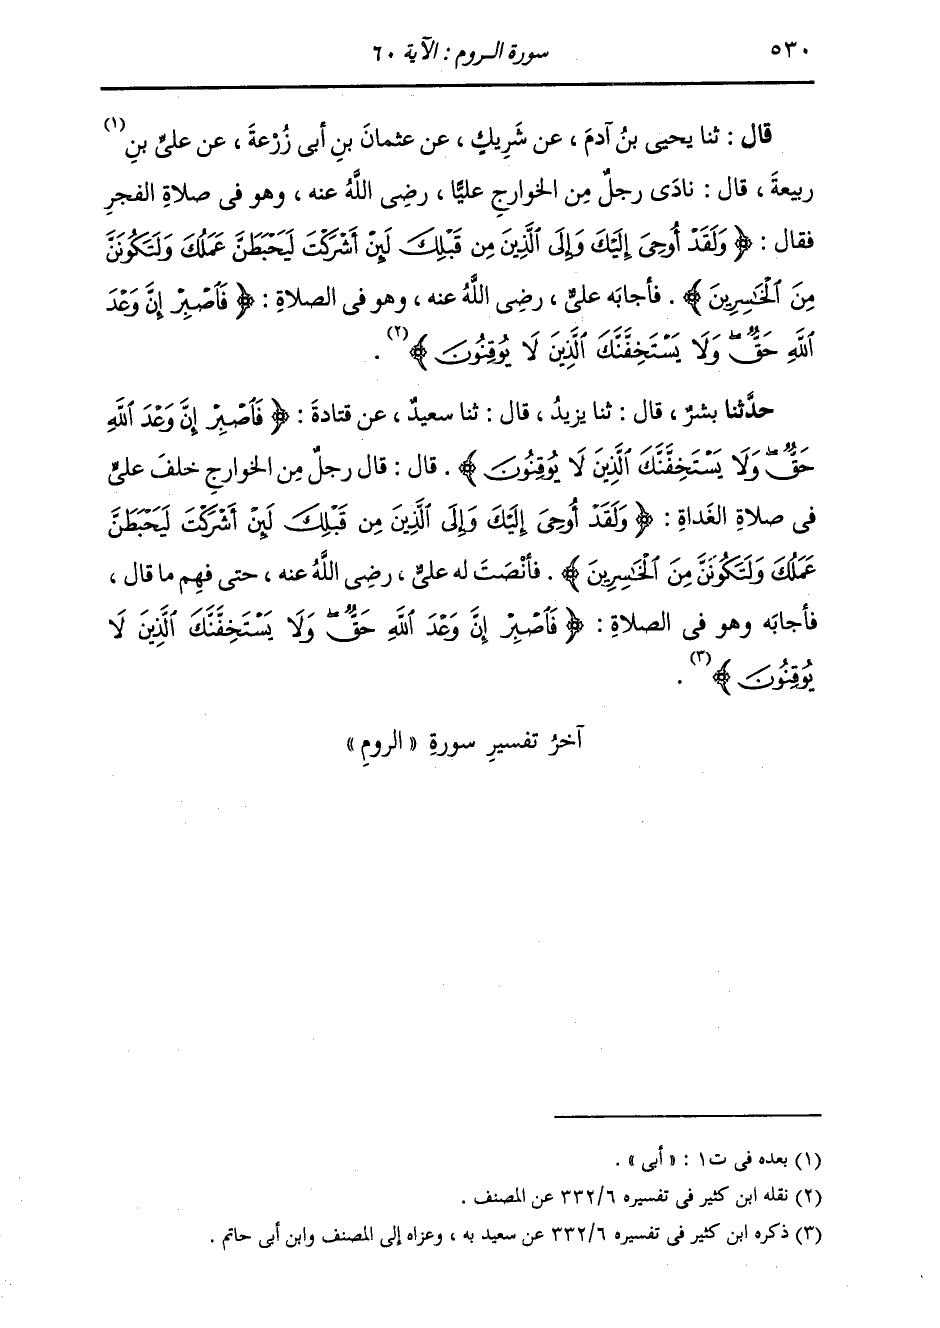 ٥٣٠
سورة الروم : الآية ٦٠
قال : ثنا يحيى بنُ آدمَ ، عن شَرِيكٍ ، عن عثمانَ بنِ أبى زُرْعةَ ، عن علىِّ بنِ(١)
ربيعةَ ، قال : نادَى رجلٌ مِن الخوارجِ عليًّا ، رضِى اللَّهُ عنه ، وهو فى صلاةِ الفجرِ
فقال : ﴿ وَلَقَدْ أُوحِىَ إِلَيْكَ وَإِلَى ٱلَّذِينَ مِن قَبْلِكَ لَئِنْ أَشْرَكْتَ لَيَحْبَطَنَّ عَمَلُكَ وَلَتَكُونَنَّ
مِنَ ٱلْخَٰسِرِينَ ﴾ . فأجابَه علىٌّ ، رضِى اللَّهُ عنه ، وهو فى الصلاةِ : ﴿ فَٱصْبِرْ إِنَّ وَعْدَ
ٱللَّهِ حَقٌّ ۖ وَلَا يَسْتَخِفَّنَّكَ ٱلَّذِينَ لَا يُوقِنُونَ ﴾(٢) .
حدَّثنا بشرٌ ، قال : ثنا يزيدُ ، قال : ثنا سعيدٌ ، عن قتادةَ : ﴿ فَٱصْبِرْ إِنَّ وَعْدَ ٱللَّهِ
حَقٌّ ۖ وَلَا يَسْتَخِفَّنَّكَ ٱلَّذِينَ لَا يُوقِنُونَ ﴾ . قال : قال رجلٌ مِن الخوارجِ خلفَ علىٍّ
فى صلاةِ الغَداةِ : ﴿ وَلَقَدْ أُوحِىَ إِلَيْكَ وَإِلَى ٱلَّذِينَ مِن قَبْلِكَ لَئِنْ أَشْرَكْتَ لَيَحْبَطَنَّ
عَمَلُكَ وَلَتَكُونَنَّ مِنَ ٱلْخَٰسِرِينَ ﴾ . فأنْصَتَ له علىٌّ ، رضِى اللَّهُ عنه ، حتى فهِم ما قال ،
فأجابَه وهو فى الصلاةِ : ﴿ فَٱصْبِرْ إِنَّ وَعْدَ ٱللَّهِ حَقٌّ ۖ وَلَا يَسْتَخِفَّنَّكَ ٱلَّذِينَ لَا
يُوقِنُونَ ﴾(٣) .
آخرُ تفسيرِ سورةِ « الرومِ »
(١) بعده فى ت١ : « أبى » .
(٢) نقله ابن كثير فى تفسيره ٣٣٢/٦ عن المصنف .
(٣) ذكره ابن كثير فى تفسيره ٣٣٢/٦ عن سعيد به ، وعزاه إلى المصنف وابن أبى حاتم .